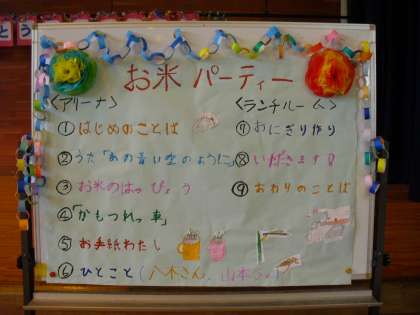 とう
お米パーティー
<アリーナ>
①はじめのことば
②うた「あの青い空のように」
③お米のはっぴょう
④「かもつれっ車」
⑤お手紙わたし
⑥ひとこと(八木さん、山本さん)
<ランチルーム>
⑦おにぎり作り
⑧いただきます
⑨おわりのことば